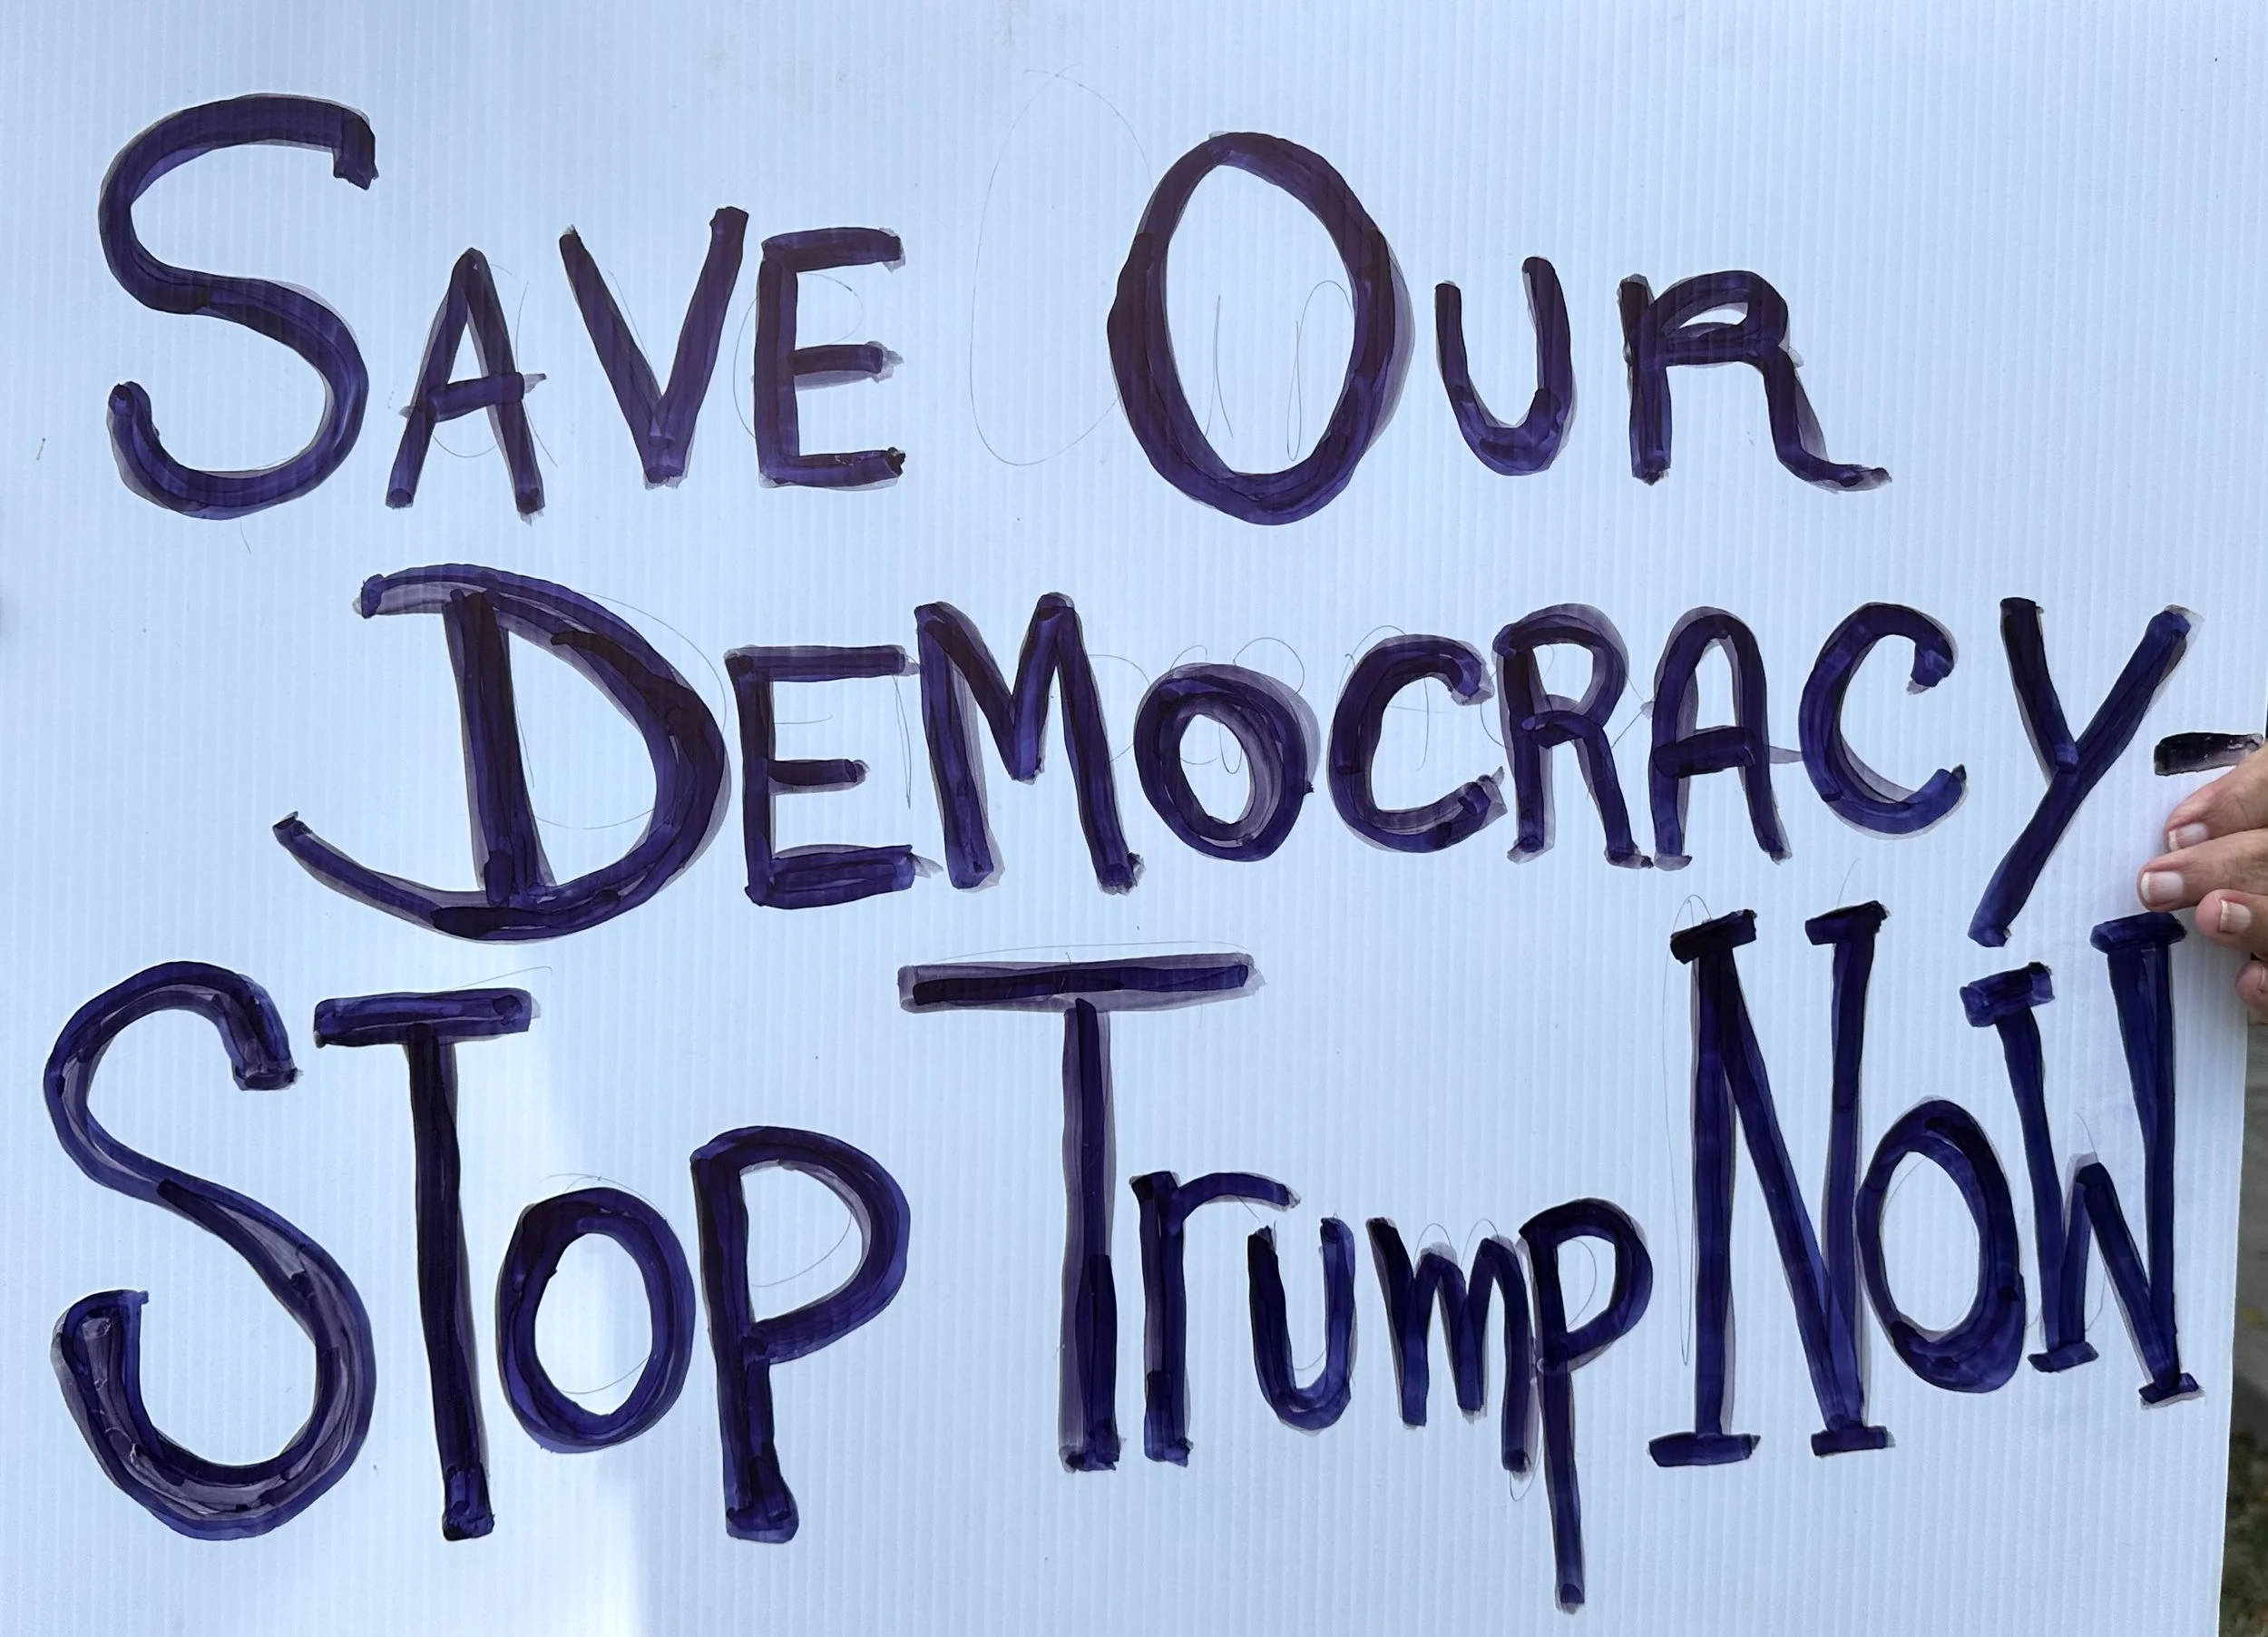 SAVE OUR
DEMOCRACY-
STOP Trump NOW